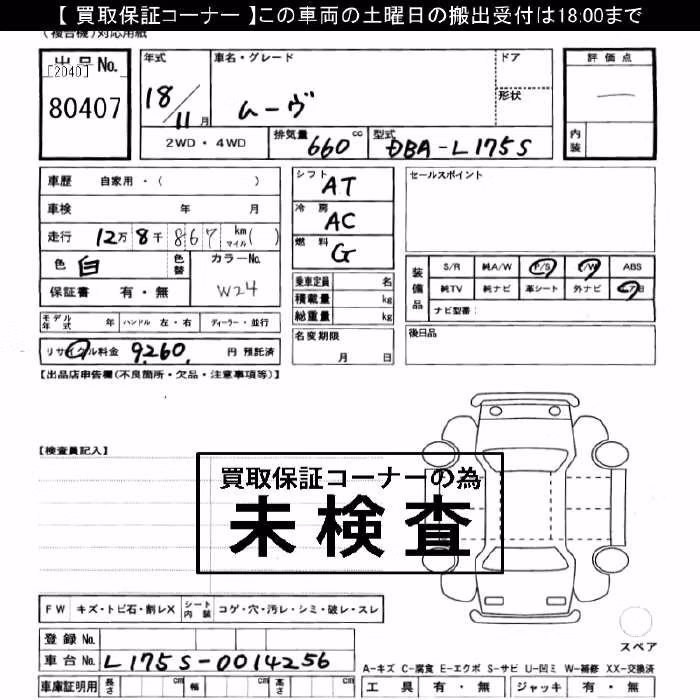 【 買取保証コーナー 】この車両の土曜日の搬出受付は18:00まで
(複合機)対応用紙
出品No. [2040] 80407
年式 18/11月
車名・グレード ムーヴ
ドア
形状
評価点 —
内装
2WD・4WD
排気量 660 cc
型式 DBA-L175S
車歴 自家用・( )
車検 年 月
走行 12万8千867 km マイル( )
色 白 色替
カラーNo. W24
保証書 有・無
シフト AT
冷房 AC
燃料 G
乗車定員 名
積載量 kg
総重量 kg
名変期限 月 日
セールスポイント
装備品
S/R 純A/W P/S P/W ABS
純TV 純ナビ 革シート 外ナビ
ナビ型番:
後日品
モデル年式 年 ハンドル 左・右 ディーラー・並行
リサイクル料金 9,260. 円 預託済
【出品店申告欄(不良箇所・欠品・注意事項等)】
【検査員記入】
買取保証コーナーの為
未検査
FW キズ・トビ石・割レX シート内装 コゲ・穴・汚レ・シミ・破レ・スレ
登録No.
車台No. L175S-0014256
スペア
A-キズ C-腐食 E-エクボ S-サビ U-凹ミ W-補修 XX-交換済
車庫証明用 長さ cm 幅 cm 高さ cm
工具 有・無 ジャッキ 有・無